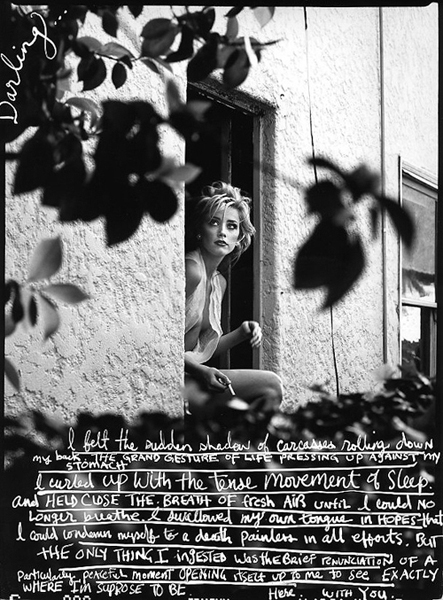 Darling...
I felt the sudden shadow of carcasses rolling down
my back. THE GRAND GESTURE OF LIFE PRESSING UP AGAINST MY
STOMACH
I curled up with the tense movement of sleep.
and HELD CLOSE THE BREATH OF fresh AIR until I could NO
Longer breathe I swallowed my own tongue in HOPES that
I could condemn myself to a death painless in all efforts. But
THE ONLY THING I ingested was the Brief renunciation OF A
particularly peaceful moment OPENING itself up to me to see EXACTLY
WHERE I'm SUPPOSE TO BE
Here WITH YOU.